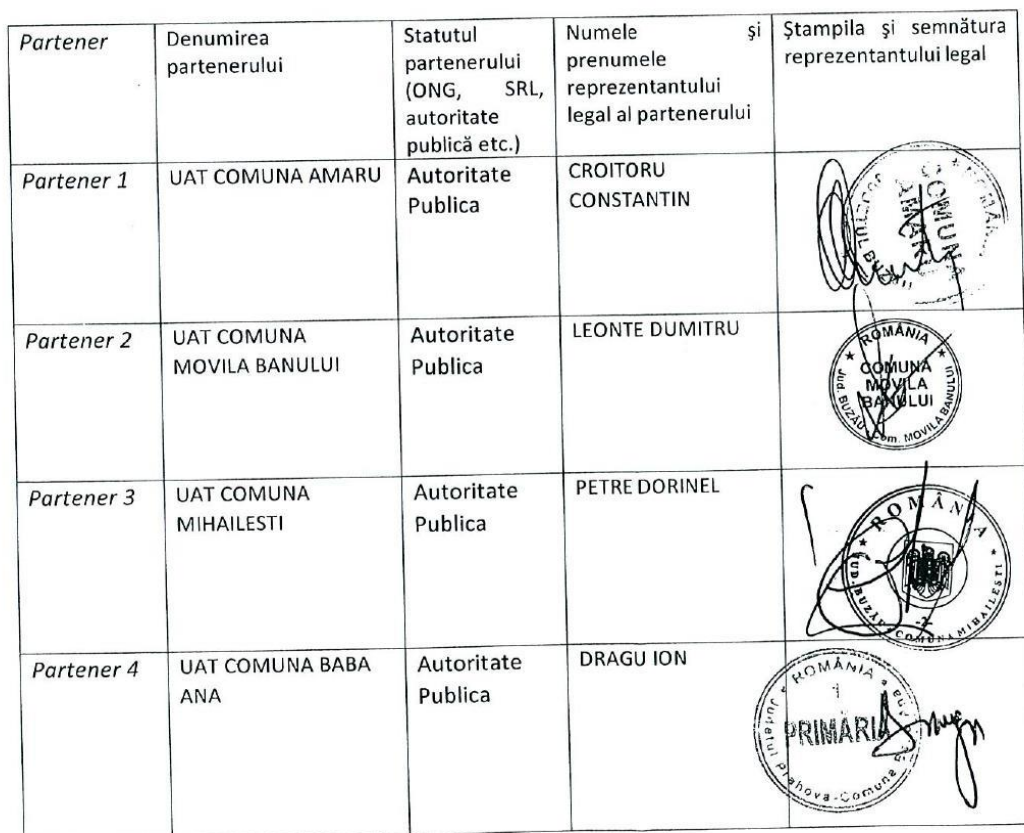 Partener
Denumirea
partenerului
Statutul
partenerului
(ONG, SRL,
autoritate
publică etc.)
Numele și
prenumele
reprezentantului
legal al partenerului
Ștampila și semnătura
reprezentantului legal
Partener 1
UAT COMUNA AMARU
Autoritate
Publica
CROITORU
CONSTANTIN
COMUNA
AMARU
Partener 2
UAT COMUNA
MOVILA BANULUI
Autoritate
Publica
LEONTE DUMITRU
ROMÂNIA
COMUNA
MOVILA
BANULUI
Jud. BUZĂU Com. MOVILA BANULUI
Partener 3
UAT COMUNA
MIHAILESTI
Autoritate
Publica
PETRE DORINEL
ROMÂNIA
JUD. BUZĂU * COMUNA MIHAILESTI
-2-
Partener 4
UAT COMUNA BABA
ANA
Autoritate
Publica
DRAGU ION
ROMÂNIA
1
PRIMĂRIA
Judetul Prahova-Comuna